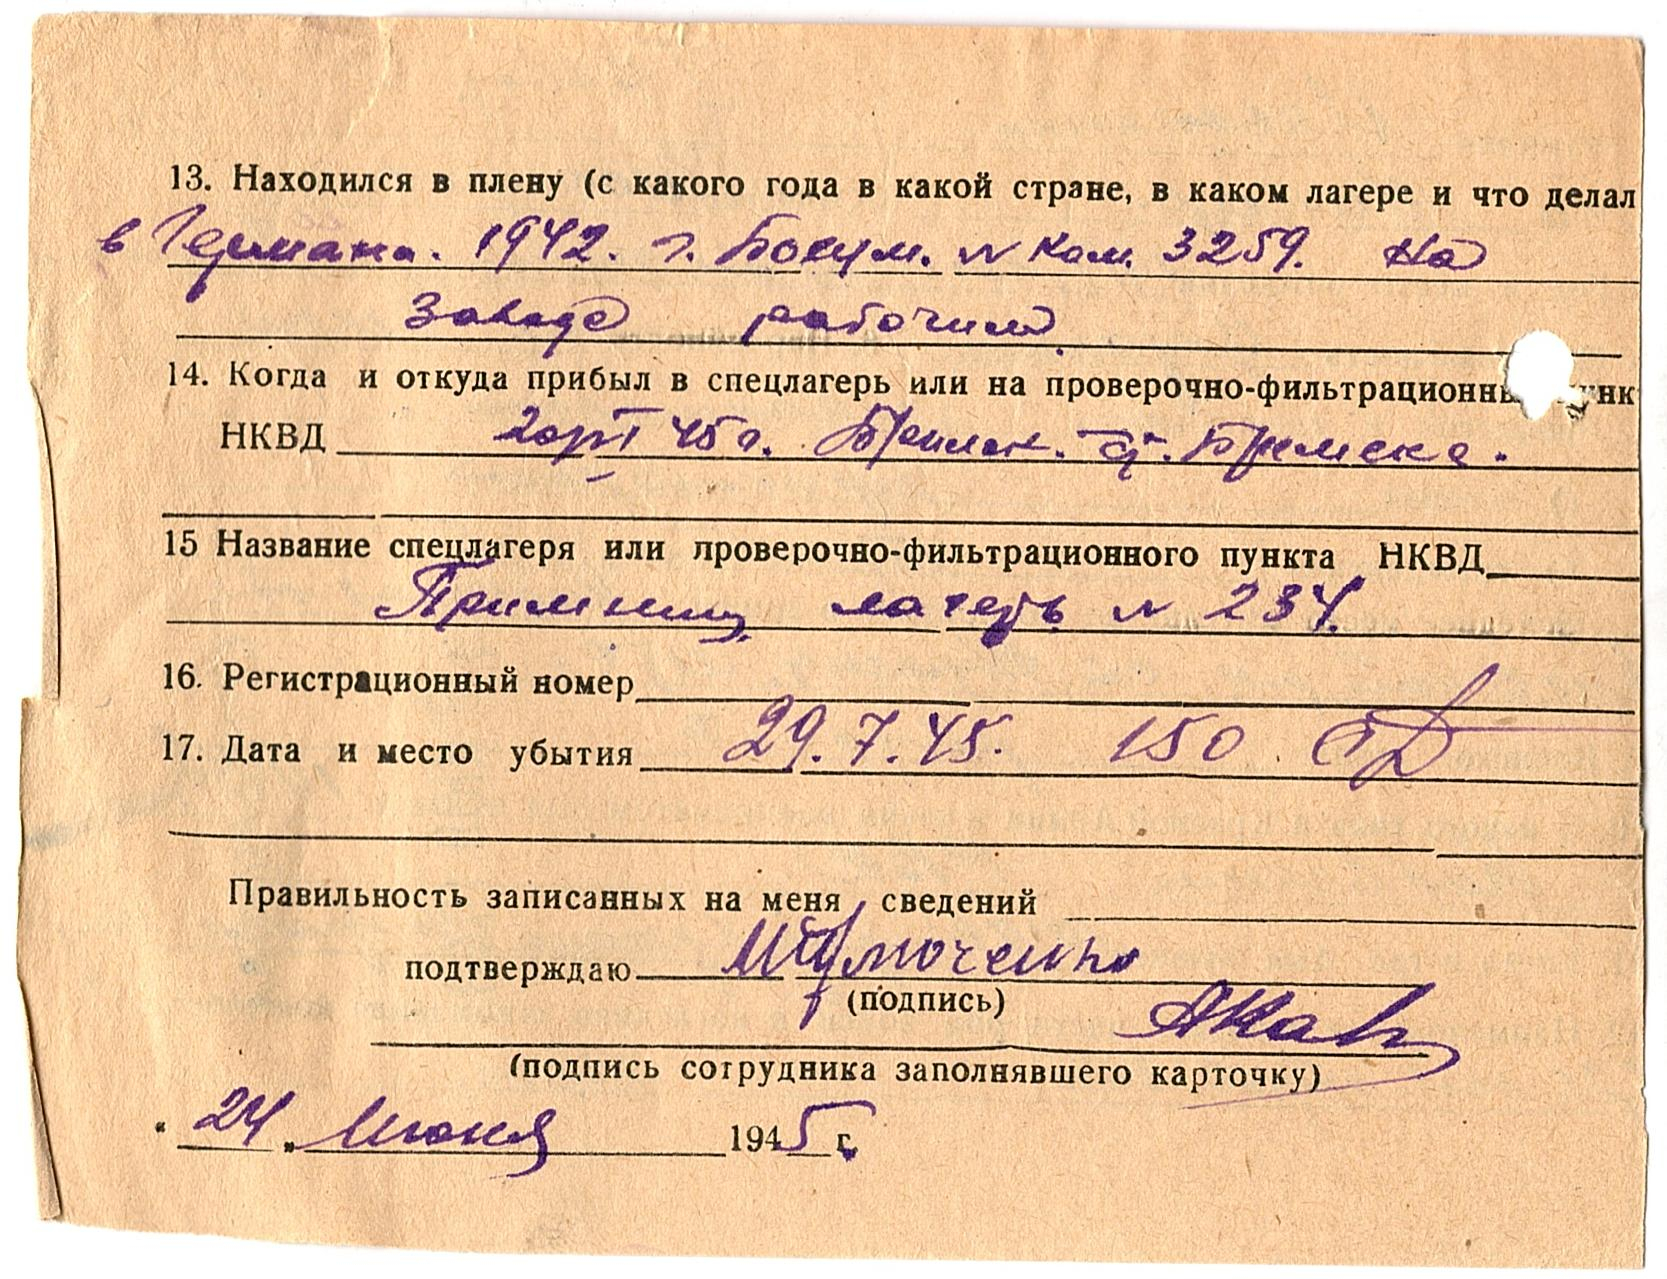 13. Находился в плену (с какого года в какой стране, в каком лагере и что делал
в Германи. 1942. г. Бохум. № Ком. 3259. На
заводе рабочим
14. Когда и откуда прибыл в спецлагерь или на проверочно-фильтрационный пунк
НКВД 45 г.
15 Название спецлагеря или проверочно-фильтрационного пункта НКВД
лагерь № 234.
16. Регистрационный номер
17. Дата и место убытия 29.7.45. 150
Правильность записанных на меня сведений
подтверждаю
(подпись)
(подпись сотрудника заполнявшего карточку)
" 24 " Июня 1945 г.